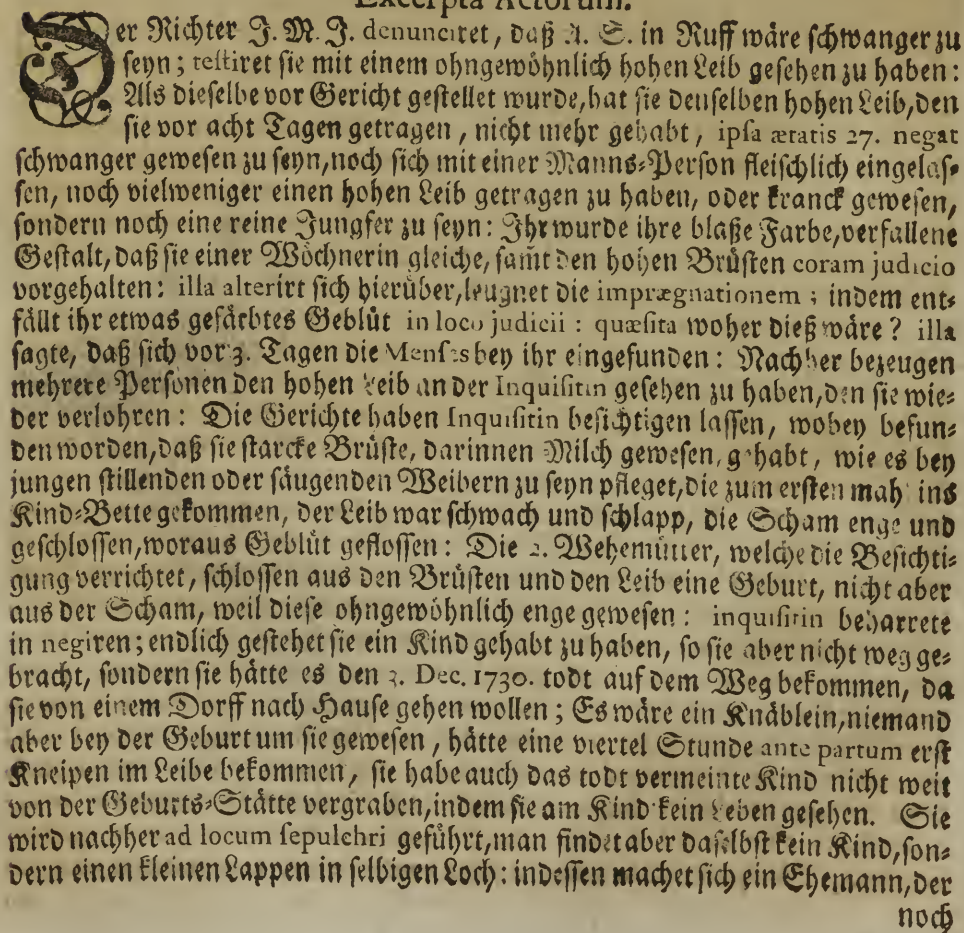 Excerpta Actorum.
Der Richter J. M. J. denunciret, daß A. S. in Ruff wäre schwanger zu
seyn; testiret sie mit einem ohngewöhnlich hohen Leib gesehen zu haben:
Als dieselbe vor Gericht gestellet wurde, hat sie denselben hohen Leib, den
sie vor acht Tagen getragen, nicht mehr gehabt, ipsa ætatis 27. negat
schwanger gewesen zu seyn, noch sich mit einer Manns-Person fleischlich eingelas-
sen, noch vielweniger einen hohen Leib getragen zu haben, oder kranck gewesen,
sondern noch eine reine Jungfer zu seyn: Ihr wurde ihre blaße Farbe, verfallene
Gestalt, daß sie einer Wöchnerin gleiche, samt den hohen Brüsten coram judicio
vorgehalten: illa alterirt sich hierüber, leugnet die imprægnationem; indem ent-
fällt ihr etwas gefärbtes Geblüt in loco judicii: quæsita woher dieß wäre? illa
sagte, daß sich vor 3. Tagen die Menses bey ihr eingefunden: Nachher bezeugen
mehrere Personen den hohen Leib an der Inquisitin gesehen zu haben, den sie wie-
der verlohren: Die Gerichte haben Inquisitin besichtigen lassen, wobey befun-
den worden, daß sie starcke Brüste, darinnen Milch gewesen, gehabt, wie es bey
jungen stillenden oder säugenden Weibern zu seyn pfleget, die zum ersten mahl ins
Kind-Bette gekommen, der Leib war schwach und schlapp, die Scham enge und
geschlossen, woraus Geblüt geflossen: Die 2. Wehemütter, welche die Besichti-
gung verrichtet, schlossen aus den Brüsten und den Leib eine Geburt, nicht aber
aus der Scham, weil diese ohngewöhnlich enge gewesen: inquisitin beharrete
in negiren; endlich gestehet sie ein Kind gehabt zu haben, so sie aber nicht weg ge-
bracht, sondern sie hätte es den 3. Dec. 1730. todt auf dem Weg bekommen, da
sie von einem Dorff nach Hause gehen wollen; Es wäre ein Knäblein, niemand
aber bey der Geburt um sie gewesen, hätte eine viertel Stunde ante partum erst
Kneipen im Leibe bekommen, sie habe auch das todt vermeinte Kind nicht weit
von der Geburts-Stätte vergraben, indem sie am Kind kein Leben gesehen. Sie
wird nachher ad locum sepulchri geführt, man findet aber daselbst kein Kind, son-
dern einen kleinen Lappen in selbigen Loch: indessen machet sich ein Ehemann, der
noch